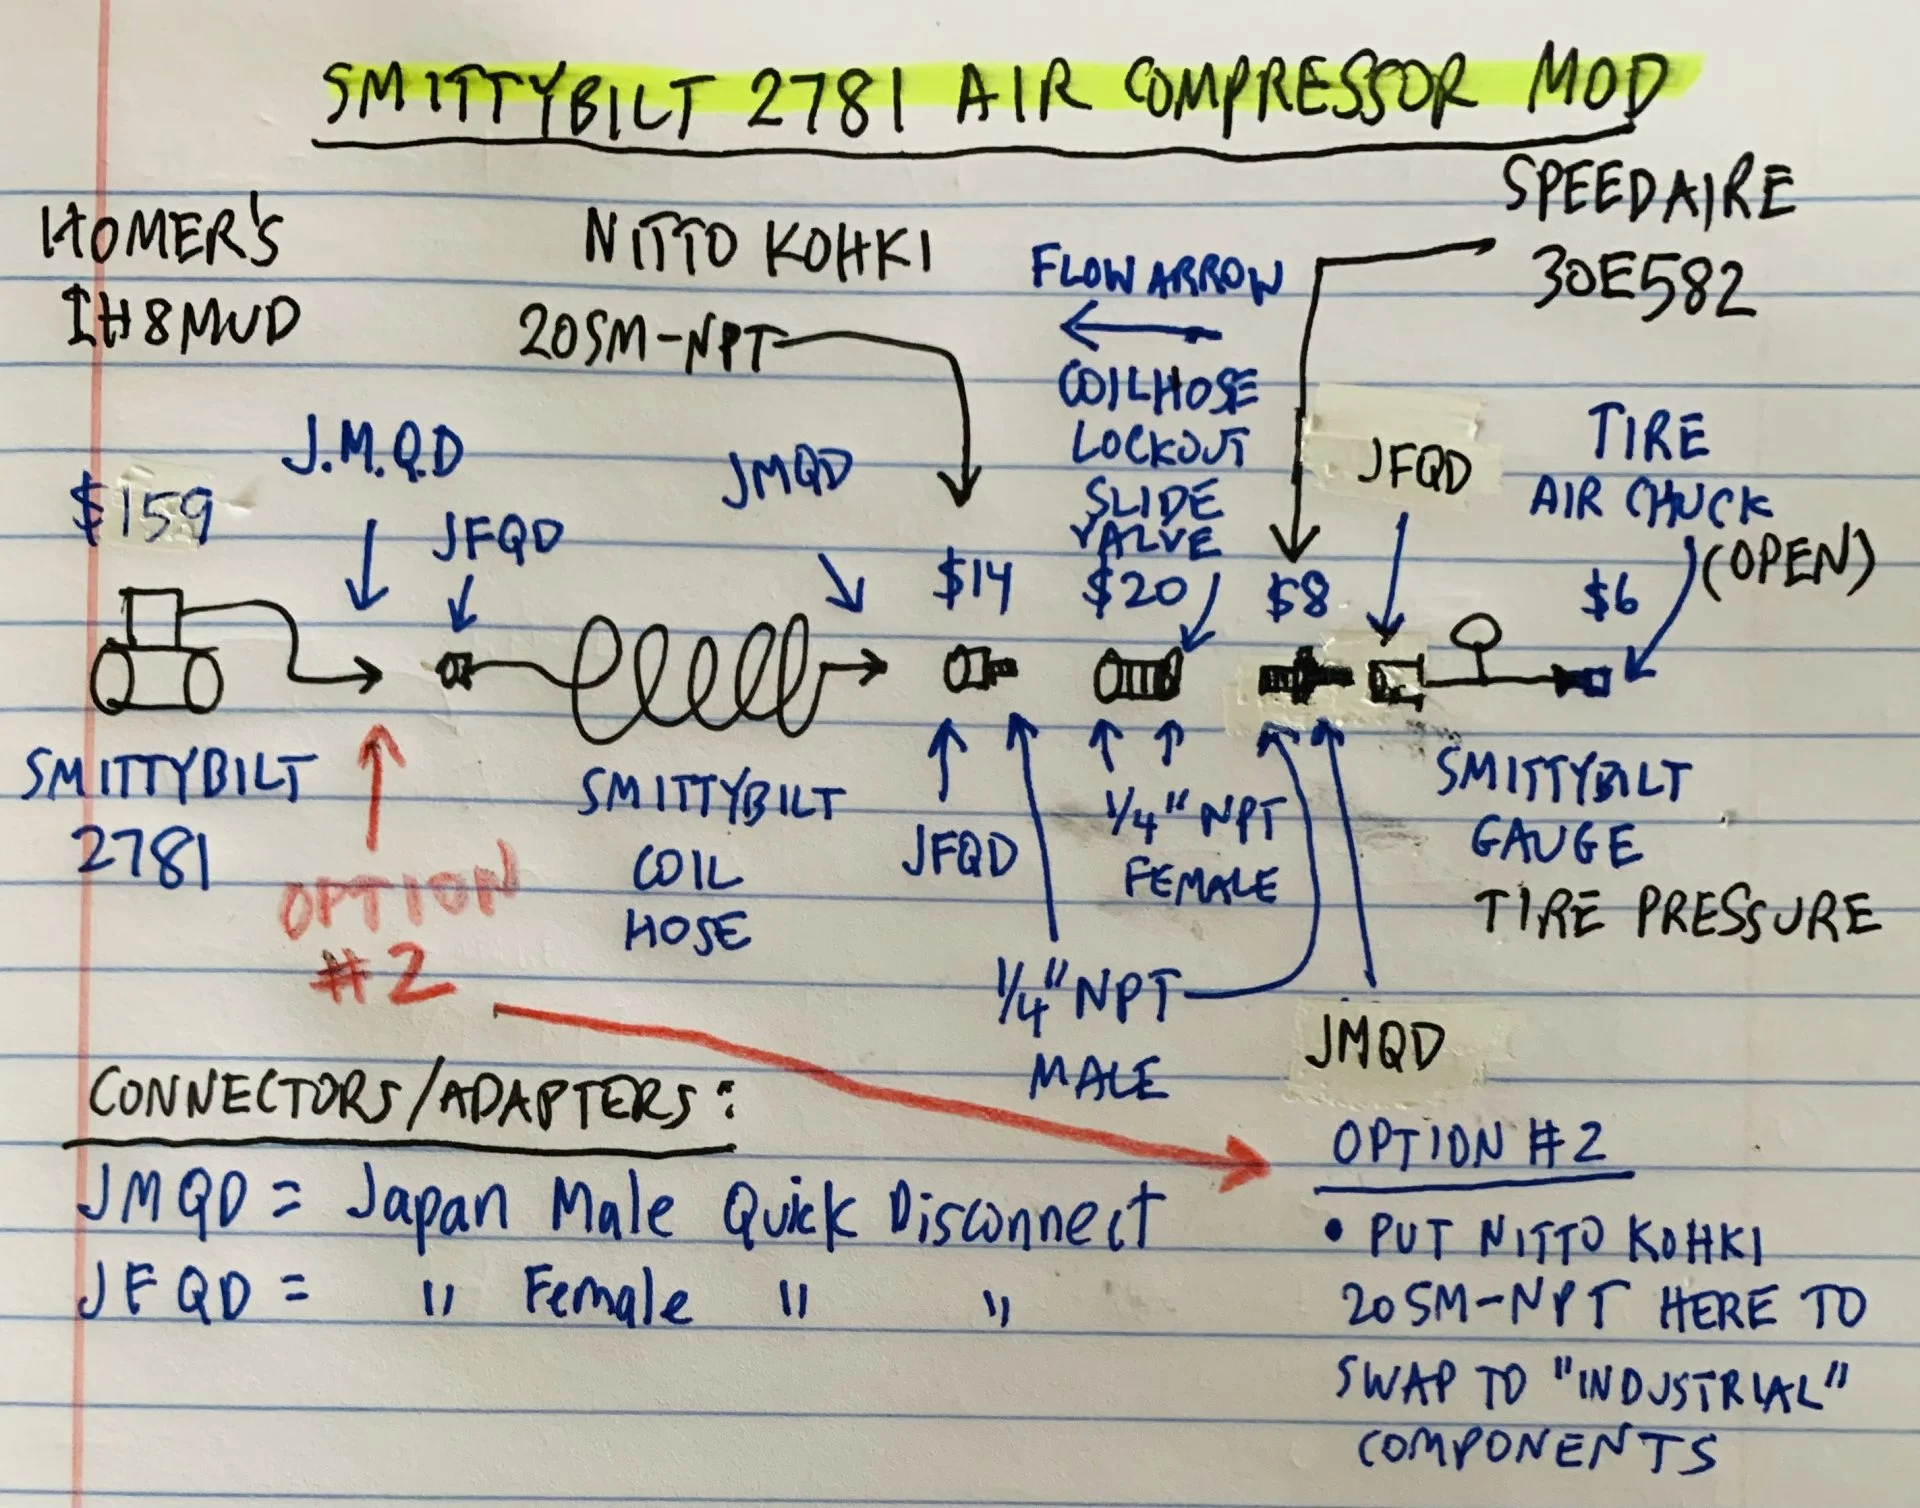 SMITTYBILT 2781 AIR COMPRESSOR MOD
HOMER'S
IH8MUD
NITTO KOHKI
20SM-NPT
FLOW ARROW
SPEEDAIRE
30E582
J.M.Q.D
JFQD
JMQD
COILHOSE
LOCKOUT
SLIDE
VALVE
JFQD
TIRE
AIR CHUCK
(OPEN)
$159
$14
$20
$8
$6
SMITTYBILT
2781
OPTION
#2
SMITTYBILT
COIL
HOSE
JFQD
1/4" NPT
FEMALE
1/4" NPT
MALE
JMQD
SMITTYBILT
GAUGE
TIRE PRESSURE
CONNECTORS/ADAPTERS:
JMQD = Japan Male Quick Disconnect
JFQD = " Female " "
OPTION #2
• PUT NITTO KOHKI
20SM-NPT HERE TO
SWAP TO "INDUSTRIAL"
COMPONENTS